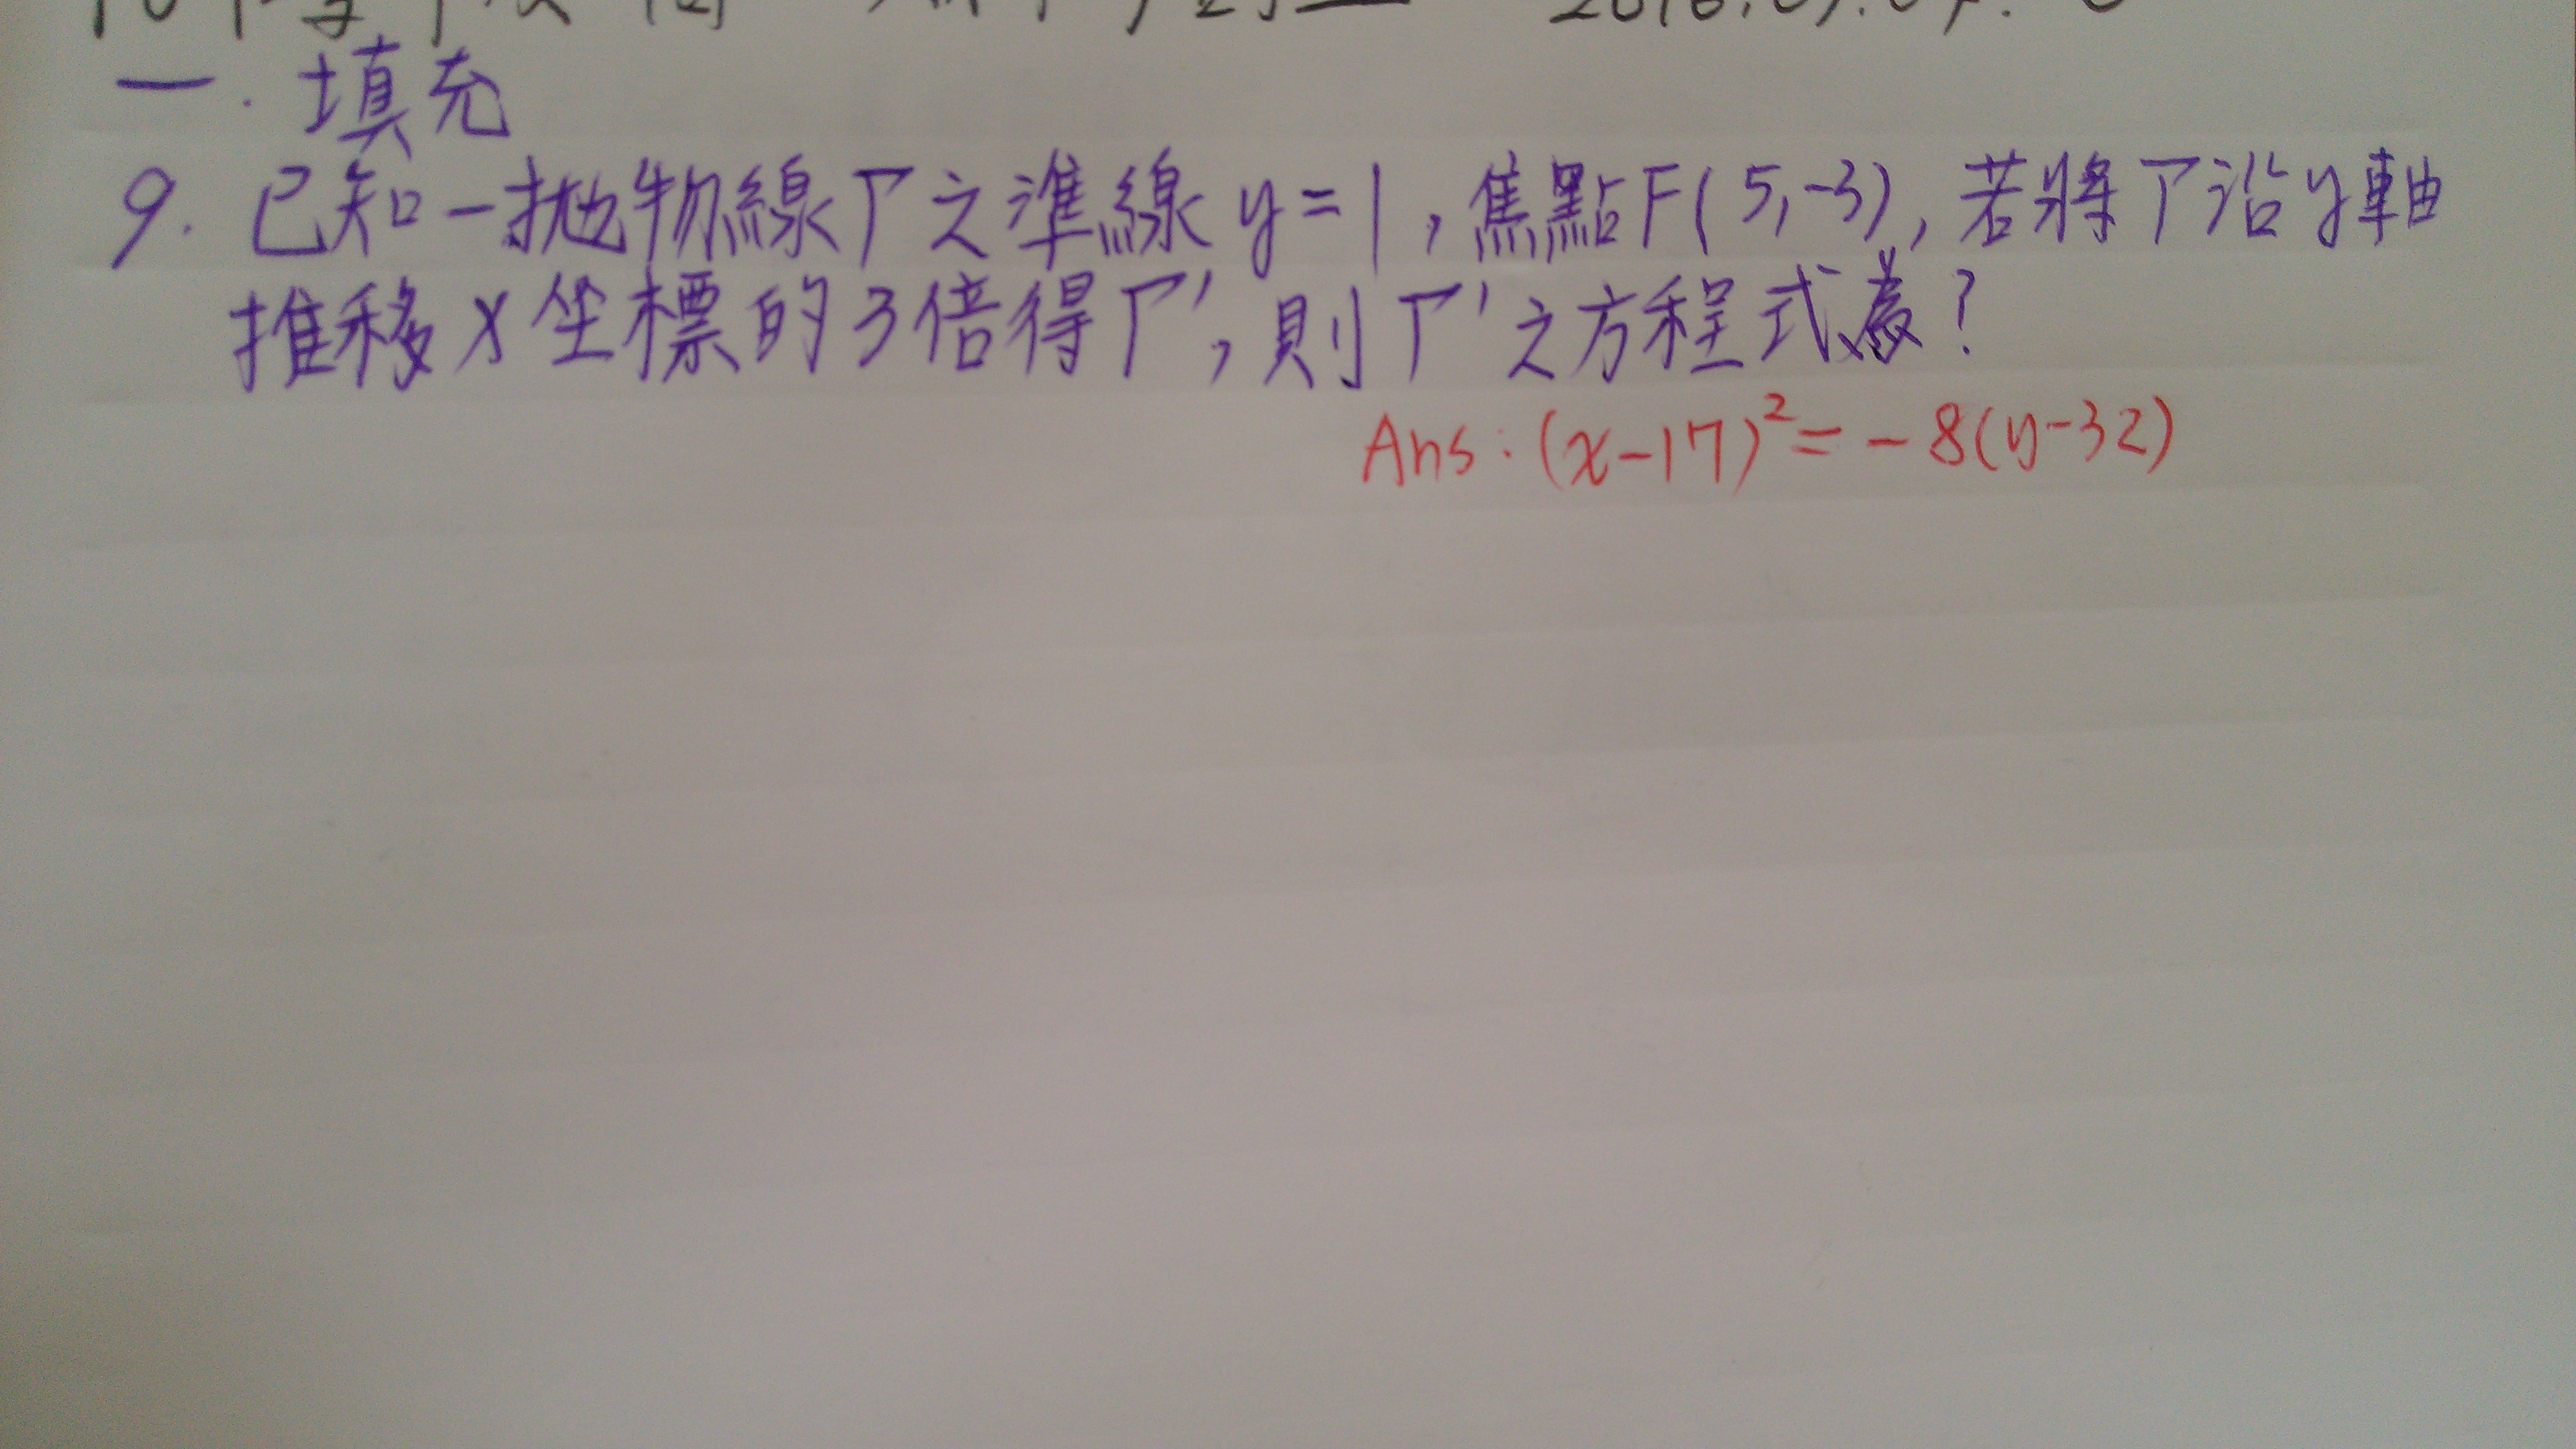 一. 填充
9. 已知一拋物線Γ之準線 y=1, 焦點F(5,-3), 若將Γ沿y軸
推移x坐標的3倍得Γ', 則Γ'之方程式為?
Ans: (x-17)²=-8(y-32)